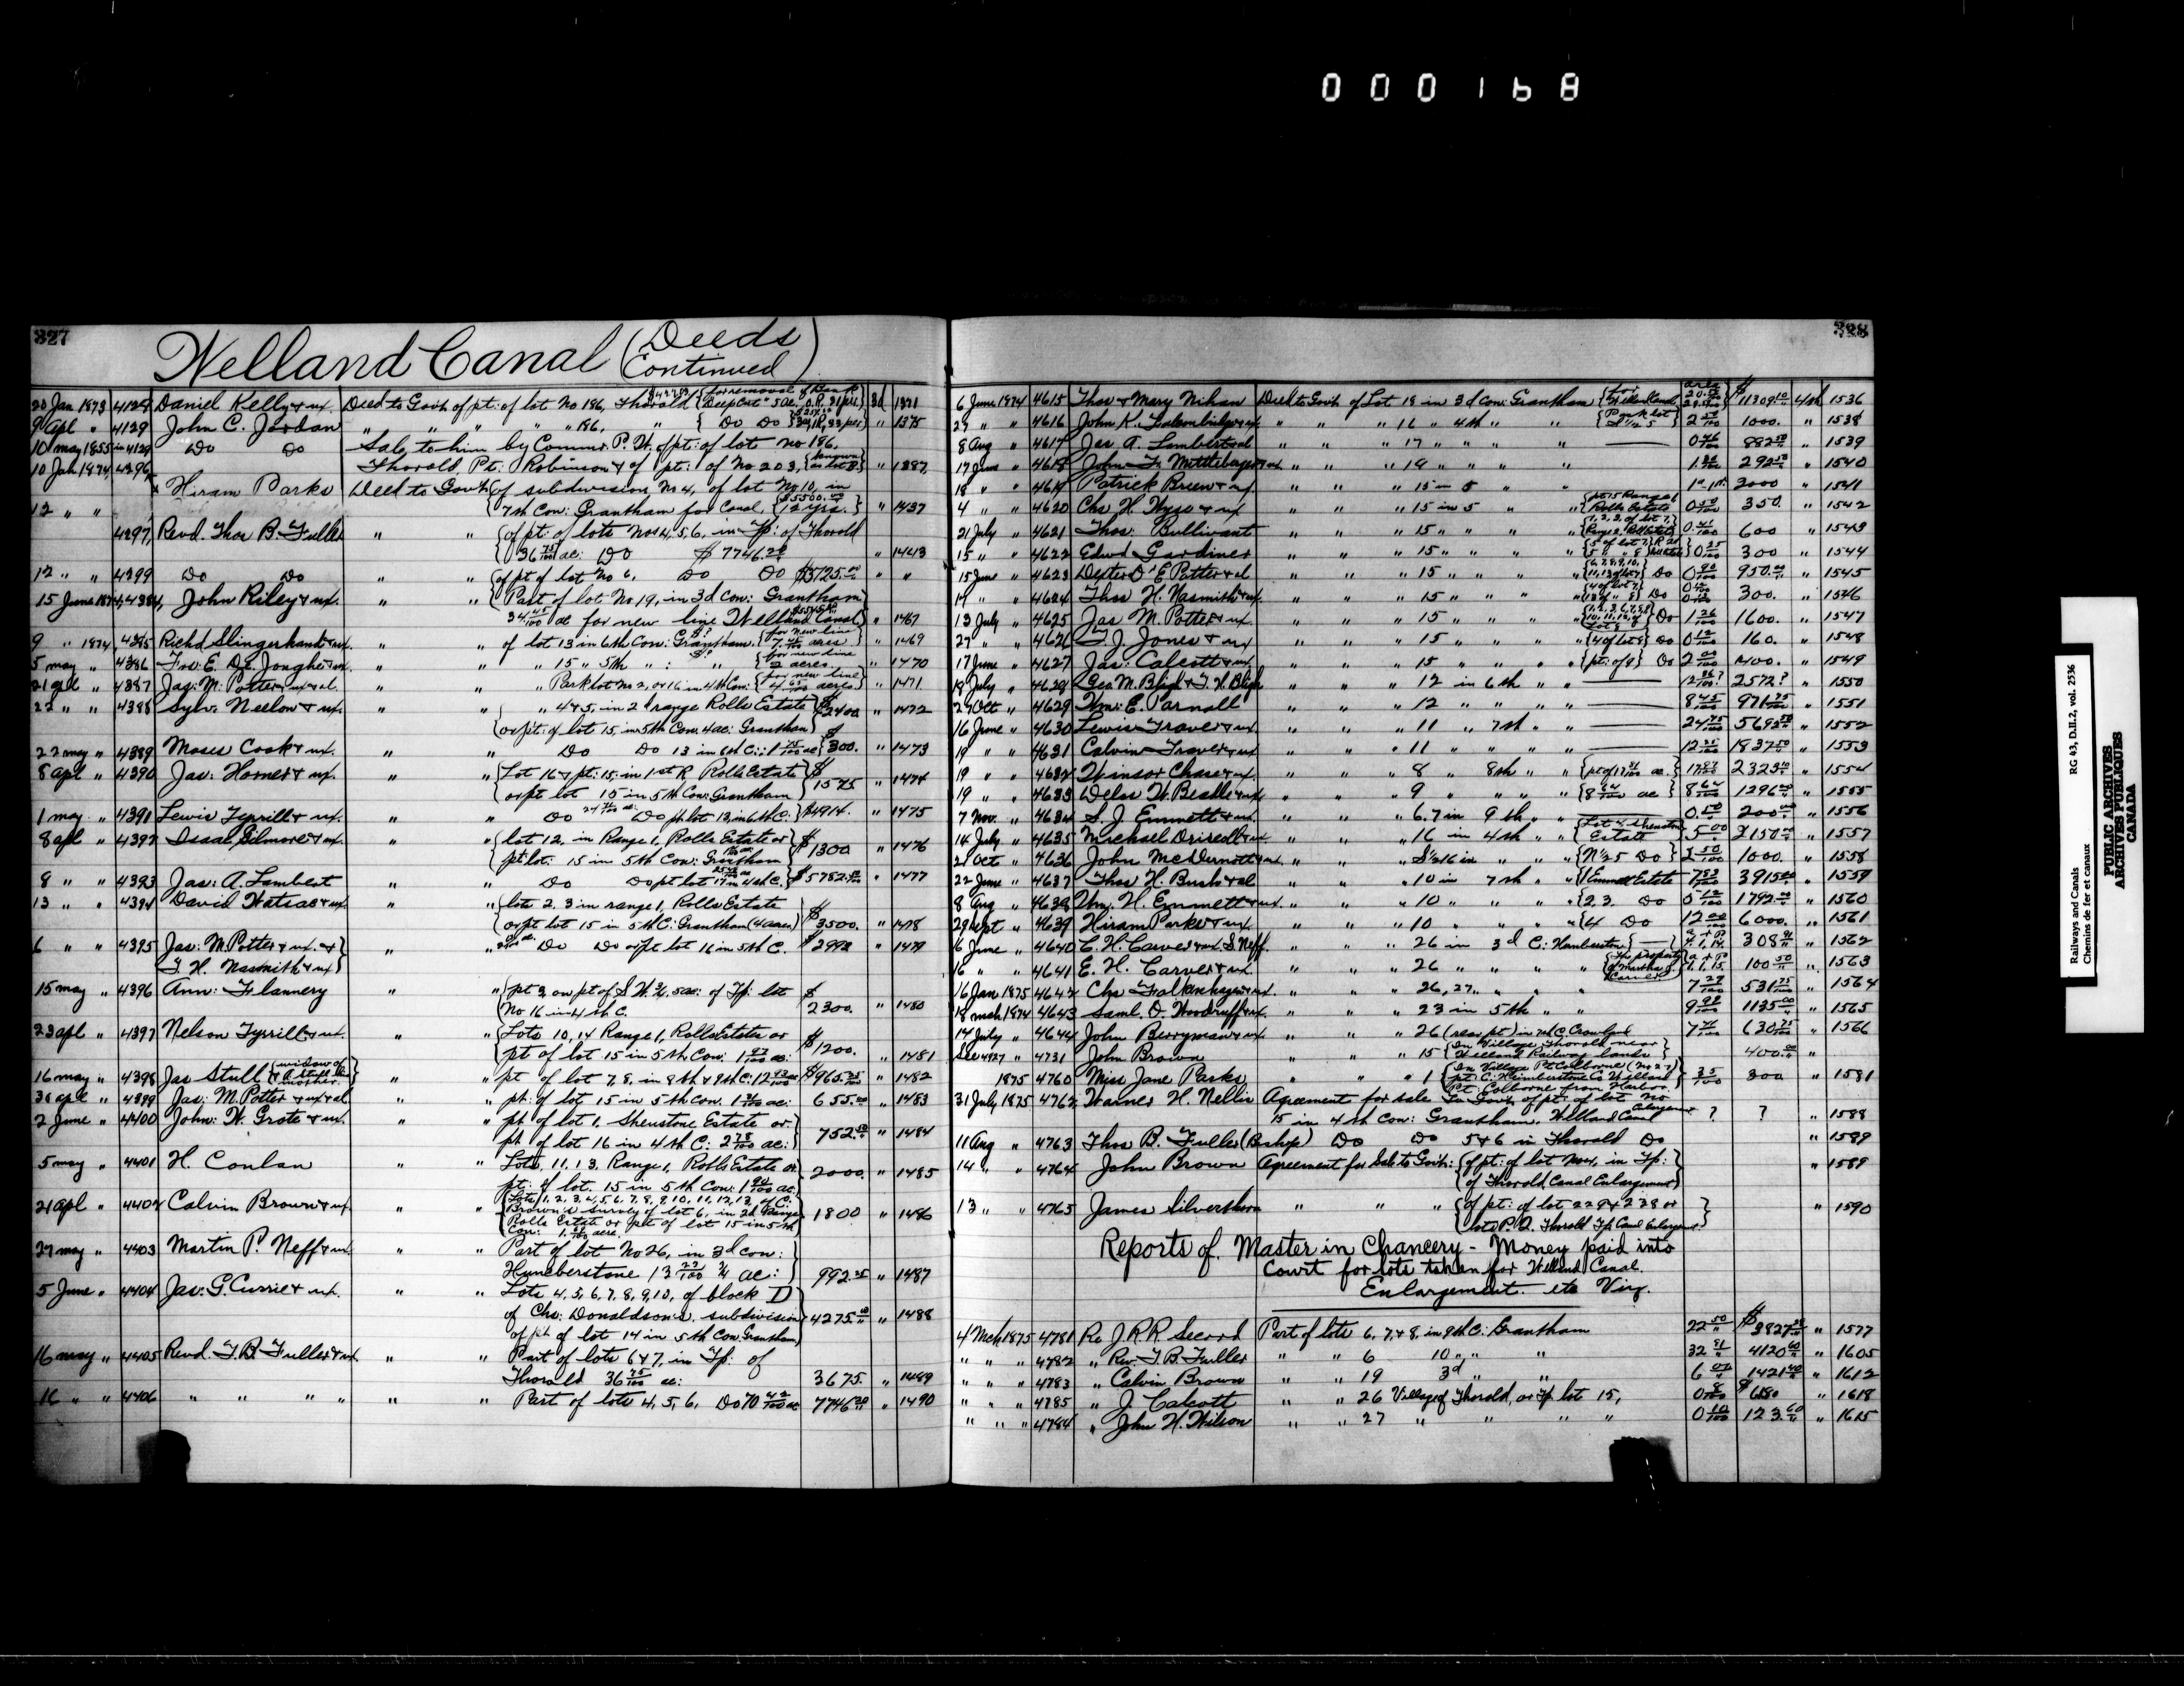 000168
327
Welland Canal (Deeds Continued)
20 Jan 1873 4128 Daniel Kelly & ux. Deed to Govt. of pt: of lot No 186, Thorold {for removal of Bank Deep Cut 3d 1371
9 apl " 4129 John C. Jordan " " " " " 186, " { Do Do " 1375
10 may 1855 in 4129 Do Do Sale to him by Commr. P. W. of pt: of lots No 186,
Thorold, Pt. Robinson & of pt: of No 203, {known as lot B} " 1387
10 Jan 1874, 4296,
Hiram Parks Deed to Govt. {of subdivision No 4, of lot No 10, in
12 " " 7th Con: Grantham for Canal {$5500.00 12 yrs.} " 1437
4297, Revd. Thos B. Fuller " " {of pt: of lots Nos 4, 5, 6, in Tp: of Thorold
36 75/100 ac: Do $7746.20 " 1443
12 " " 4299 Do Do " " {of pt of lot No 6, Do Do $3725.00 " "
15 June 1874, 4384, John Riley & ux. " " {Part of lot No 19, in 3d Con: Grantham
34 45/100 ac for new line Welland Canal} " 1467
9 " 1874, 4385 Richd Slingerhand & ux. " " of lot 13 in 6th Con: Grantham. {for new line 7 45/100 acres} " 1469
5 may " 4386 Fro: E. De Jonghe & ux. " " " 15 " 5th " : " {for new line 2 acres " 1470
21 apl " 4387 Jas: M: Potter & ux & al. " " " Park lot No 2, or 16 in 4th Con: {for new line 4 65/100 acres} " 1471
22 " " 4388 Sylvr. Neelon & ux. " " " 4 & 5, in 2d range Rolls Estate} $2400 " 1472
or pt: of lot 15, in 5th Con. 4 ac: Grantham}
22 may " 4389 Moses Cook & ux. " " Do Do 13 in 6th C: 1 15/100 ac} $300. " 1473
8 apl " 4390 Jas: Horner & ux. " " {Lot 16 & pt: 15, in 1st R Rolls Estate} $1575 " 1474
or pt lot 15 in 5th Con: Grantham
1 may " 4391 Lewis Tyrrill & ux. " " Do Do pt. lot 13, in 6th C.} $4914. " 1475
8 apl " 4392 Isaac Gilmore & ux. " " {lot 12, in Range 1, Rolls Estate or} $1300 " 1476
pt: lot: 15 in 5th Con: Grantham
8 " " 4393 Jas: A. Lambert " " Do Do pt lot 17 in 4th C.} $5782. " 1477
13 " " 4394 David Watson & ux. " " {lots 2, 3 in range 1, Rolls Estate
or pt lot 15 in 5th C: Grantham (4 acres)} $3500. " 1478
6 " " 4395 Jas: M. Potter & ux. & T. H. Nasmith & ux} " " Do Do or pt lot 16 in 5th C. $2992 " 1479
15 may " 4396 Ann: Flannery " " {pt 3, on pt of S W ¼, 5 ac: of Tp: lot $2300. " 1480
No 16 in 4th C.
23 apl " 4397 Nelson Tyrrill & ux. " " {Lots 10, 14 Range 1, Rolls Estate or $1200. " 1481
pt of lot 15 in 5th Con:
16 may " 4398 Jas Stull {widow of " " pt of lot 7, 8, in 8th & 9th C: 12 93/100 ac $965.25 " 1482
30 apl " 4399 Jas: M. Potter & ux & al " " pt: of lot 15 in 5th Con. ac: 655.00 " 1483
2 June " 4400 John: W. Grote & ux. " " pt of lot 1, Shenstone Estate or
pt. of lot 16 in 4th C: 2 78/100 ac: 752.50 " 1484
5 may " 4401 H. Conlan " " Lots, 11, 13, Range 1, Rolls Estate or
pt: of lot 15 in 5th Con: 2000. " 1485
21 apl " 4402 Calvin Brown & ux. " " {Lots 1, 2, 3, 4, 5, 6, 7, 8, 9, 10, 11, 12, 13, of C.
Brown's survey of lot 6, in 2d Range
Rolls Estate or pt of lot 15 in 5th 1800 " 1486
Con:
27 may " 4403 Martin P. Neff & ux. " " Part of lot No 26, in 3d con:
Humberstone 992.25 " 1487
5 June " 4404 Jas: G. Currie & ux. " " Lots 4, 5, 6, 7, 8, 9, 10, of block D
of Chs: Donaldson's subdivision 4275.00 " 1488
of pt of lot 14 in 5th Con. Grantham
16 may " 4405 Revd. T. B. Fuller & ux. " " Part of lots 6 & 7, in Tp: of
Thorold 36 75/100 ac: 3675. " 1489
16 " " 4406 " " " " " " Part of lots 4, 5, 6, Do 70 42/100 ac 7746.20 " 1490
328
6 June 1874 4615 Thos & Mary Nihan Deed to Govt. of Lot 18 in 3d Con: Grantham 11309.10 4th 1536
27 " " 4616 John K. " " " 16 " 4th " " {Park lot 2 50/100 1000. " 1538
8 Aug " 4617 Jas A. Lambert & al " " " 17 " " " " 0 46/100 882.50 " 1539
17 June " 4618 John F. Mittleberger & ux " " " 19 " " " " 292.50 " 1540
18 " " 4619 Patrick Breen & ux. " " " 15 in 5 " " 2000 " 1541
4 " " 4620 Chs H. Wyse & ux " " " 15 in 5 " " {Rolls Estate 0 50/100 350. " 1542
21 July " 4621 Thos. Bullivant " " " 15 " " " " {1, 2, 3, of lot 7, 0.41/100 600 " 1543
15 " " 4622 Edwd Gardiner " " " 15 " " " " 0 25/100 300 " 1544
15 June " 4623 Dexter D'E Potter & al " " " 15 " " " " {6, 7, 8, 9, 10, 11, 13 of lot 7} Do 0 90/100 950.00 " 1545
17 " " 4624 Thos H. Nasmith & ux. " " " 15 " " " " Do 300. " 1546
13 July " 4625 Jas M. Potter & ux. " " " 15 " " " " Do 1 26/100 1600. " 1547
27 " " 4626 T. J. Jones & ux " " " 15 " " " " {4 of lot 8} Do 0 12/100 160. " 1548
17 June " 4627 Jas: Calcott & ux " " " 15 " " " " {pt: of 9} Do 2 00/100 1400. " 1549
18 July " 4628 Geo. M. Bligh & T. H. Bligh " " " 12 in 6th " " 2572? " 1550
27 Oct " 4629 Wm: E. Parnall " " " 12 " " " " 8 45/100 971.75 " 1551
16 June " 4630 Lewis Traver & ux " " " 11 " 7th " " 24 75/100 5692.50 " 1552
19 " " 4631 Calvin Traver & ux " " " 11 " " " " 12 25/100 1837.50 " 1553
19 " " 4632 Winsor Chase & ux. " " " 8 " 8th " " 17 87/100 2323.10 " 1554
19 " " 4633 Delos W. Beadle & ux " " " 9 " " " " {8 64/100 ac} 8 64/100 1296.00 " 1555
7 Nov. " 4634 S. J. Emmett & ux. " " " 6.7 in 9th " " 0.50 200.00 " 1556
14 July " 4635 Michael Driscoll & ux " " " 16 in 4th " " {Lot 4 Shenstone Estate} 5 00 2150.00 " 1557
21 Oct " 4636 John McDermott & ux. " " " S½ 16 in " " " {N½ 5 Do} 2 50/100 1000. " 1558
22 June " 4637 Thos H. Bush & al " " " 10 in 7th " " {1 Emmett Estate 7 83/100 3915.00 " 1559
8 Aug " 4638 Wm. H. Emmett & ux. " " " 10 " " " " {2, 3. Do 5 12/100 1792.00 " 1560
29 sept " 4639 Hiram Parks & ux. " " " 10 " " " " {4 Do 12 00/100 6000. " 1561
6 June " 4640 E. H. Carver & ux. S. Neff. " " " 26 in 3d C: Humberstone {—} 308.91 " 1562
16 " " 4641 E. H. Carver & ux. " " " 26 " " " " {The property of Martha J. Carver} 1.1.15. 100.50 " 1563
16 Jan 1875 4642 Chs Falkenhagen & ux. " " " 26, 27 " " " 7 29/100 531.75 " 1564
18 mch. 1874 4643 Saml. D. Woodruff & ux. " " " 23 in 5th " " 9 98/100 1135.00 " 1565
14 July " 4644 John Berryman & ux " " " 26 (rear pt) in 2d C. Crowland 630.75 " 1566
See 4427 " 4731 John Brown " " " 15 {In Village Thorold near Welland Railway lands} 400.00 "
1875 4760 Miss Jane Parks " " " 1 {In Village Pt Colborne (No 27) pt: C: Humberstone Co Welland Pt: Colborne from Harbor. 35/100 300 " 1581
31 July 1875 4762, Warner H. Nellis Agreement for sale to Govt. of pt: of lot No
15 in 4th Con: Grantham. Welland Canal Enlargement ? ? " 1588
11 Aug " 4763 Thos B. Fuller (Bishop) Do Do 5 & 6 in Thorold Do " 1589
14 " " 4764 John Brown Agreement for Sale to Govt: {of pt: of lot No 4, in Tp: " 1589
of Thorold, Canal Enlargement}
13 " " 4765 James Silverthorn " " " {of pt: of lot 229 & 228 or " 1590
lots P. Q. Thorold Tp. Canal Enlargemt.
Reports of Master in Chancery - Money paid into
Court for lots taken for Welland Canal.
Enlargement. etc Viz.
4 Mch 1875 4781 Re J. R. R. Secord Part of lots 6, 7, & 8, in 9th C: Grantham 22 50 " 1577
" " " 4782 " Rev. T. B. Fuller " " 6 10 " " " 4120.60 " 1605
" " " 4783 " Calvin Brown " " 19 3d " " 1421.40 " 1612
" " " 4785 " J. Calcott " " 26 Village of Thorold, or Tp. lot 15, " 1618
" " " 4784 " John H. Wilson " " 27 " " " " 0 10/100 123.60 " 1615
Railways and Canals RG 43, D.II.2, vol. 2536
Chemins de fer et canaux
PUBLIC ARCHIVES
ARCHIVES PUBLIQUES
CANADA